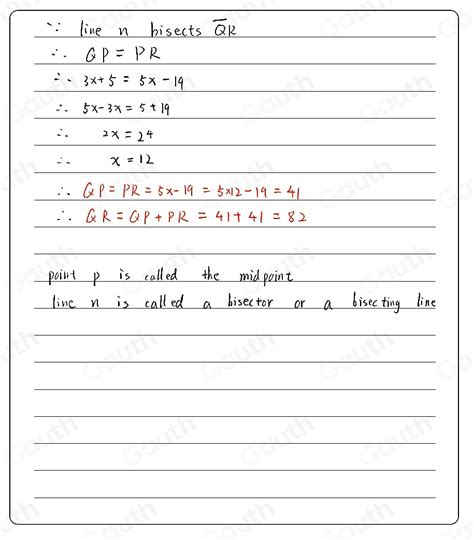 ∵ line n bisects Q̅R̅
∴ QP = PR
∴ 3x+5 = 5x-19
∴ 5x-3x = 5+19
∴ 2x = 24
∴ x = 12
∴ QP = PR = 5x-19 = 5x12-19 = 41
∴ QR = QP + PR = 41 + 41 = 82
point p is called the midpoint
line n is called a bisector or a bisecting line